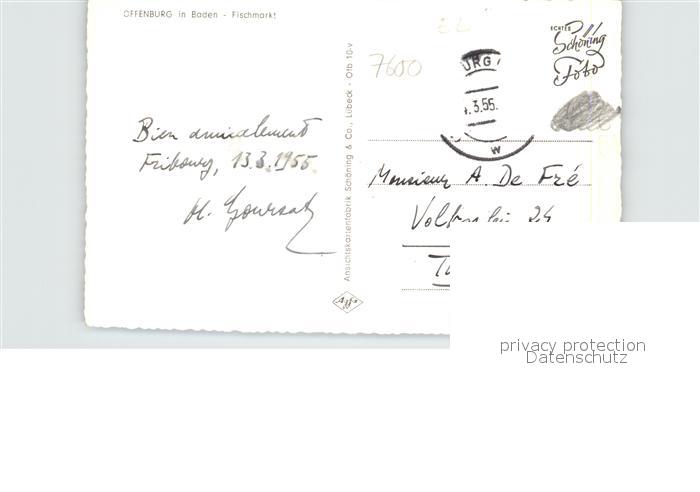 OFFENBURG in Baden - Fischmarkt
7600
ECHTES
Schöning
Foto
URG
.3.55.
w
Bien amicalement
Fribourg, 13.3.1955
Ansichtskartenfabrik Schöning & Co., Lübeck · Ofb 10-v
Agfa
Monsieur A. De Fré
24
privacy protection
Datenschutz